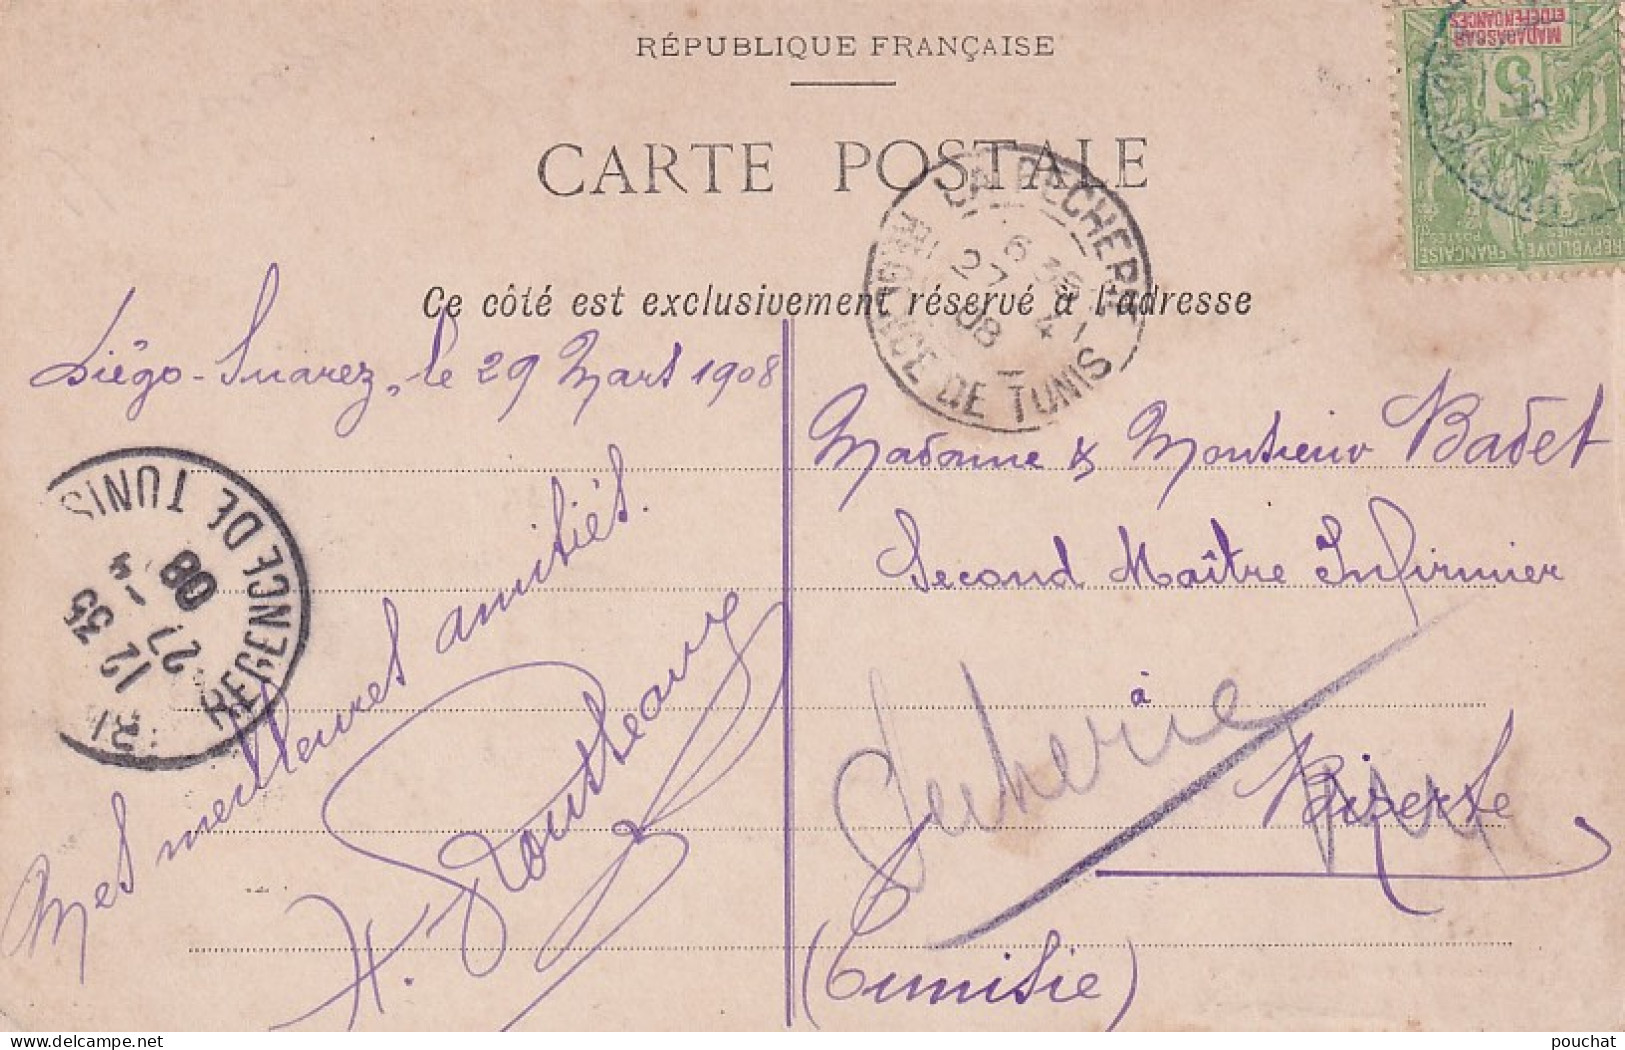 RÉPUBLIQUE FRANÇAISE
CARTE POSTALE
Ce côté est exclusivement réservé à l'adresse
MADAGASCAR
ET DÉPENDANCES
5
RÉPUBLIQUE FRANÇAISE
LA PECHERIE
6 
27 4
08
RÉGENCE DE TUNIS
Diégo-Suarez, le 29 Mars 1908
Mes meilleures amitiés.
REGENCE DE TUNIS
12 35
27 4
08
Madame & Monsieur Badet
Second Maître Infirmier
à
Bizerte
(Tunisie)
Pecherie
pouchat